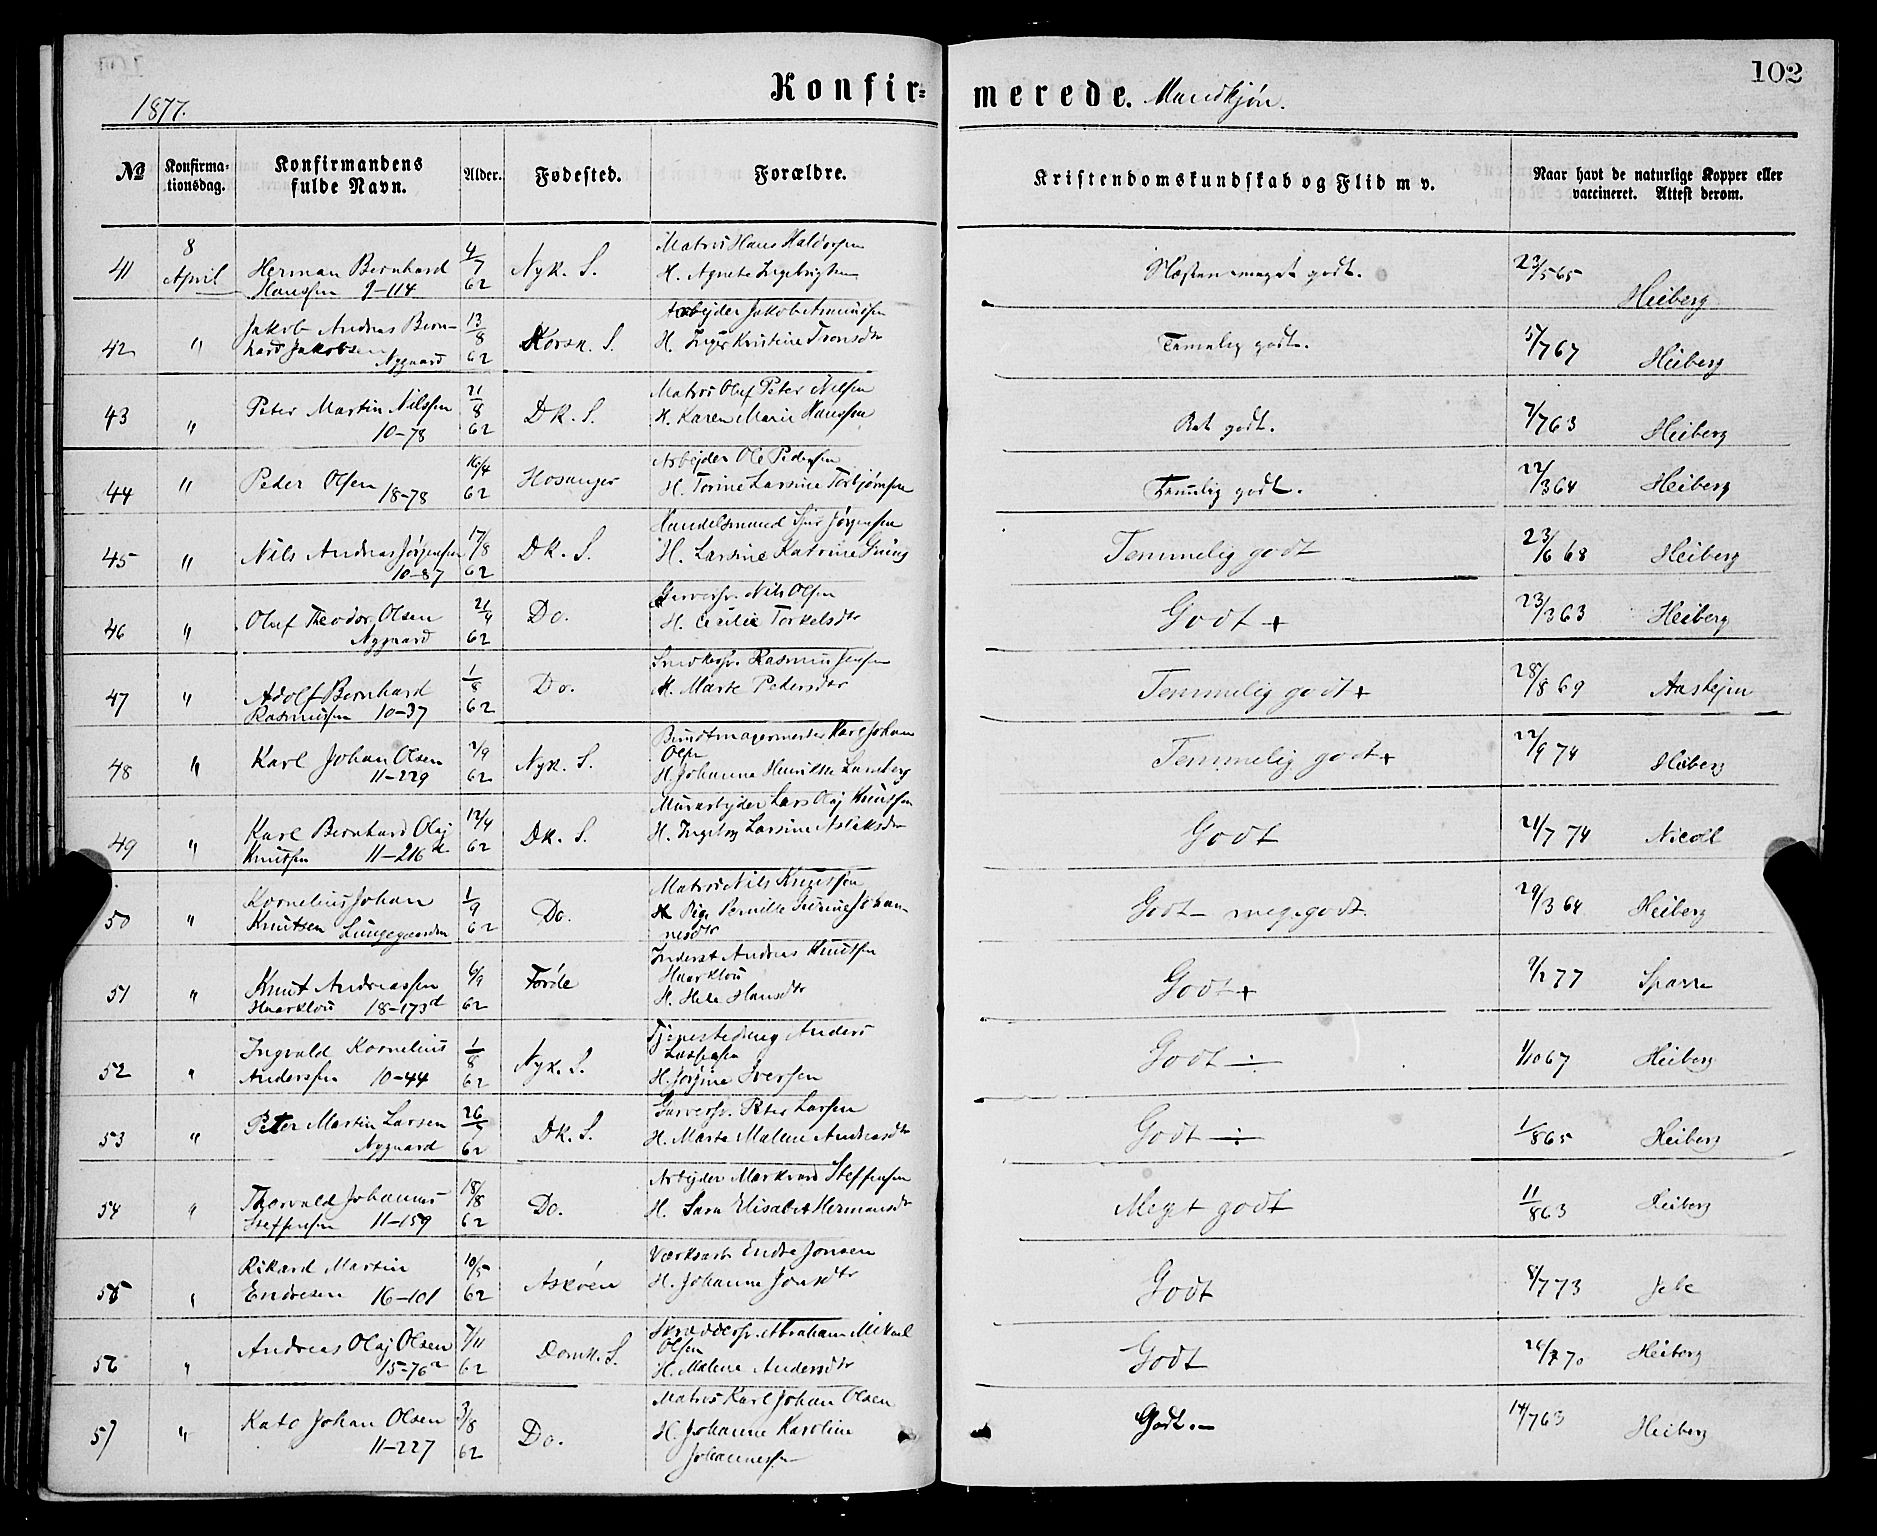 102
1877.
Konfir=
merede. Mandkjøn.
No
Konfirma=
tionsdag.
Konfirmandens
fulde Navn.
Alder.
Fødested.
Forældre.
Kristendomskundskab og Flid m v.
Naar havt de naturlige Kopper eller
vaccineret. Attest derom.
8
Matros Hans Haldorsen
41 April Herman Bernhard 4/7 Nyk. S. H. Agnete Ingebrigtsen Næsten meget godt. 23/5 65 Heiberg
Hanssen 9-114 62
Jakob Andreas Bern- 13/8 Arbejder Jakob Asmussen
42 " hard Jakobsen Korsk. S. H. Inger Kristine Tronsdtr Temmelig godt. 5/7 67 Heiberg
Nygaard 62
Matros Oluf Peter Nilsen
43 " Peter Martin Nilssen 21/8 DK. S. H. Karen Marie Hanssen Ret godt. 7/7 63 Heiberg
10-78 62
Arbejder Ole Pedersen
44 " Peder Olsen 18-78 16/4 62 Hosanger H. Torine Larsine Torbjørnsen Temmelig godt. 22/3 64 Heiberg
Handelsmand Jørgensen
45 " Nils Andreas Jørgensen 17/8 DK. S. H. Larsine Katrine Temmelig godt 23/6 68 Heiberg
10-87 62
Garversv. Nils Olsen
46 " Oluf Theodor Olsen 21/9 Do. H. Cecilie Torkelsdtr Godt + 23/3 63 Heiberg
Nygaard 62
Snedkersv. Rasmus Jensen
47 " Adolf Bernhard 1/8 Do. H. Marte Pedersdtr Temmelig godt + 28/8 69
Rasmussen 10-37 62
Bundtmagermester Karl Johan
Olsen
48 " Karl Johan Olsen 2/9 Nyk. S. H. Johanna Henrikke Lamberg Temmelig godt + 22/9 74 Heiberg
11-229 62
Murarbejder Lars Olaj Knutsen
49 " Karl Bernhard Olaj 12/4 DK. S. H. Ingeborg Larsine Aslaksdtr Godt 21/7 74 Nicoll
Knutsen 11-216d 62
Matros Nils Knutsen
50 " Kornelius Johan 1/9 Do. Pige Pernille Gurine Johan- Godt - meg. godt. 29/3 64 Heiberg
Knutsen Lungegaarden 62 nesdtr
Inderst Andreas Knutsen
51 " Knut Andreassen 6/9 Førde Haarklou Godt + 9/2 77 Sparre
Haarklou 18-173d 62 H. Hele Hansdtr
Tjenestedreng Anders
52 " Ingvald Kornelius 1/8 Nyk. S. Godt ÷ 1/10 67 Heiberg
Anderssen 10-44 62 H. Jørgine Iversen
Garversv. Peter Larsen
53 " Peter Martin Larsen 26/7 DK. S. H. Marta Malene Andreasdtr Godt ÷ 1/8 65 Heiberg
Nygaard 62
Arbejder Markvard Steffensen
54 " Thorvald Johannes 18/8 Do. H. Sara Elisabet Hermansdtr Meget godt 11/8 63 Heiberg
Steffensen 11-159 62
Værksarb. Endre Jonsen
55 " Rikard Martin 10/5 Askøen H. Johanna Jonsdtr Godt 8/7 73 Jebe
Endresen 16-101 62
Skræddersv. Abraham Mikael
Olsen
56 " Andreas Olaj Olsen 7/11 Domk. S. H. Malene Andersdtr Godt 26/7 70 Heiberg
15-76 62
Matros Karl Johan Olsen
57 " Kato Johan Olsen 3/8 Do. H. Johanne Karoline Godt. - 14/7 63 Heiberg
11-227 62 Johannessen